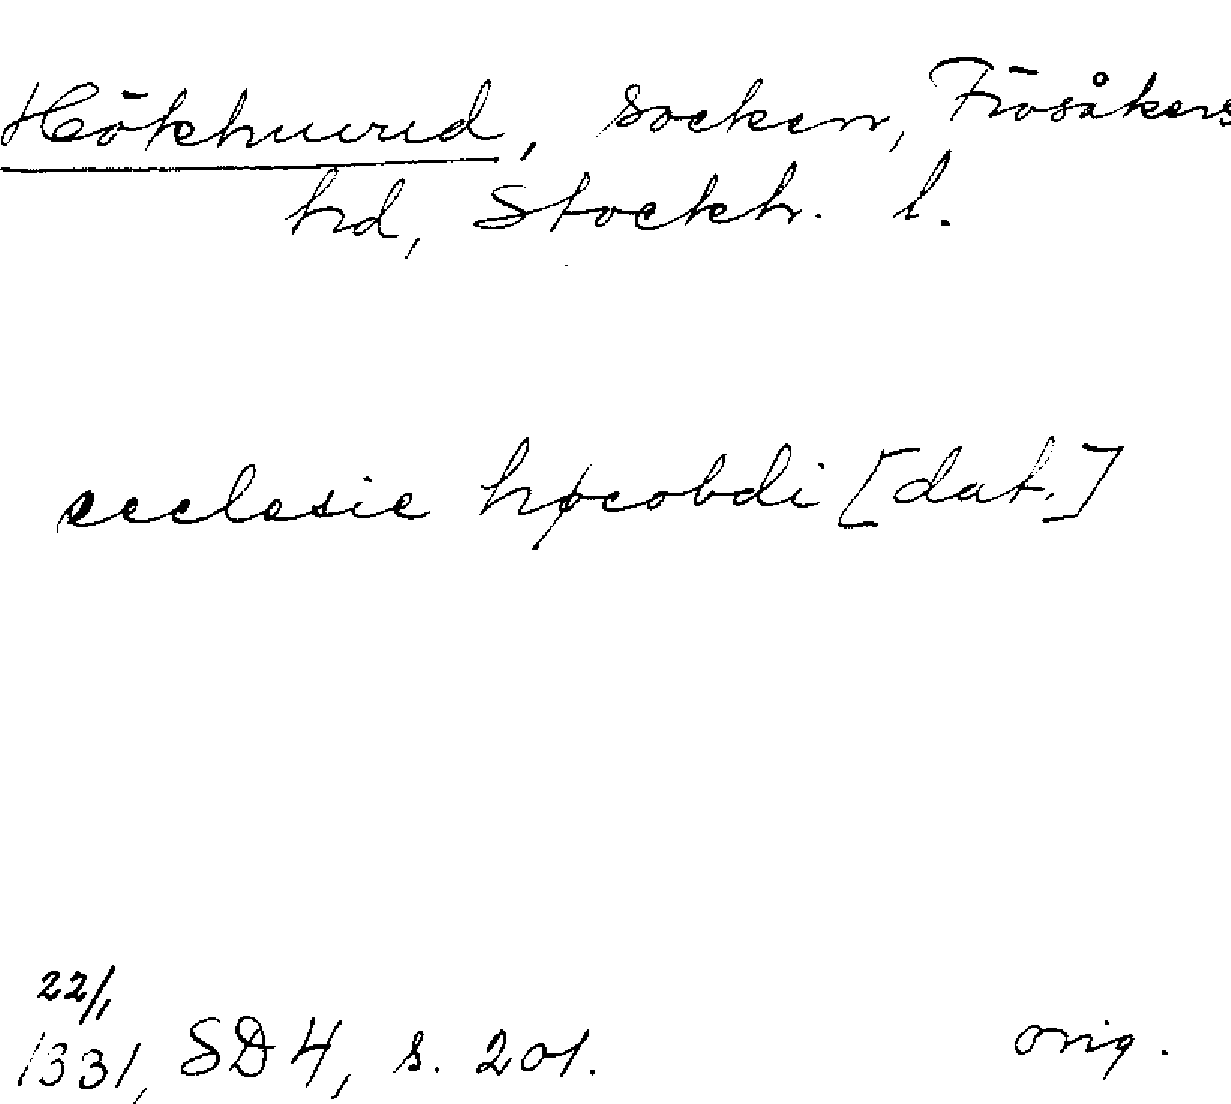 Hökhuvud, socken, Frösåkers
hd, Stockh. l.
ecclesie høcobdi [dat.]
22/1
1331, SD 4, s. 201.
orig.